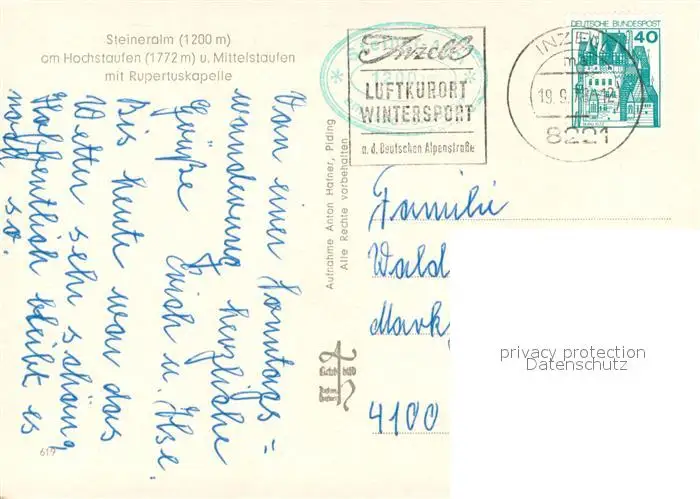 Steineralm (1200 m)
am Hochstaufen (1772 m) u. Mittelstaufen
mit Rupertuskapelle
Inzell
LUFTKURORT
WINTERSPORT
a. d. Deutschen Alpenstraße
INZELL
19. 9.
-12
8221
DEUTSCHE BUNDESPOST
40
Von einer Sonntags=
wanderung herzliche
Grüße Erich u. Ilse
Bis heute war das
Wetter sehr schön,
Hoffentlich bleibt es
noch so.
Aufnahme Anton Hafner, Piding
Alle Rechte vorbehalten
Familie
Wald
Mark
4100
privacy protection
Datenschutz
619